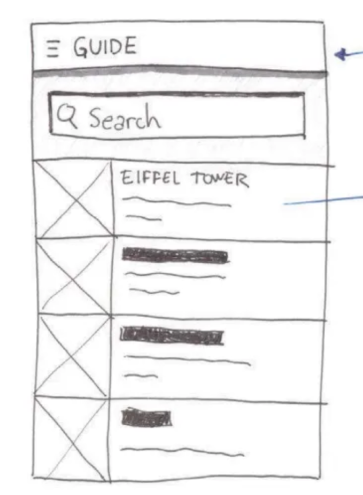 GUIDE
Search
EIFFEL TOWER